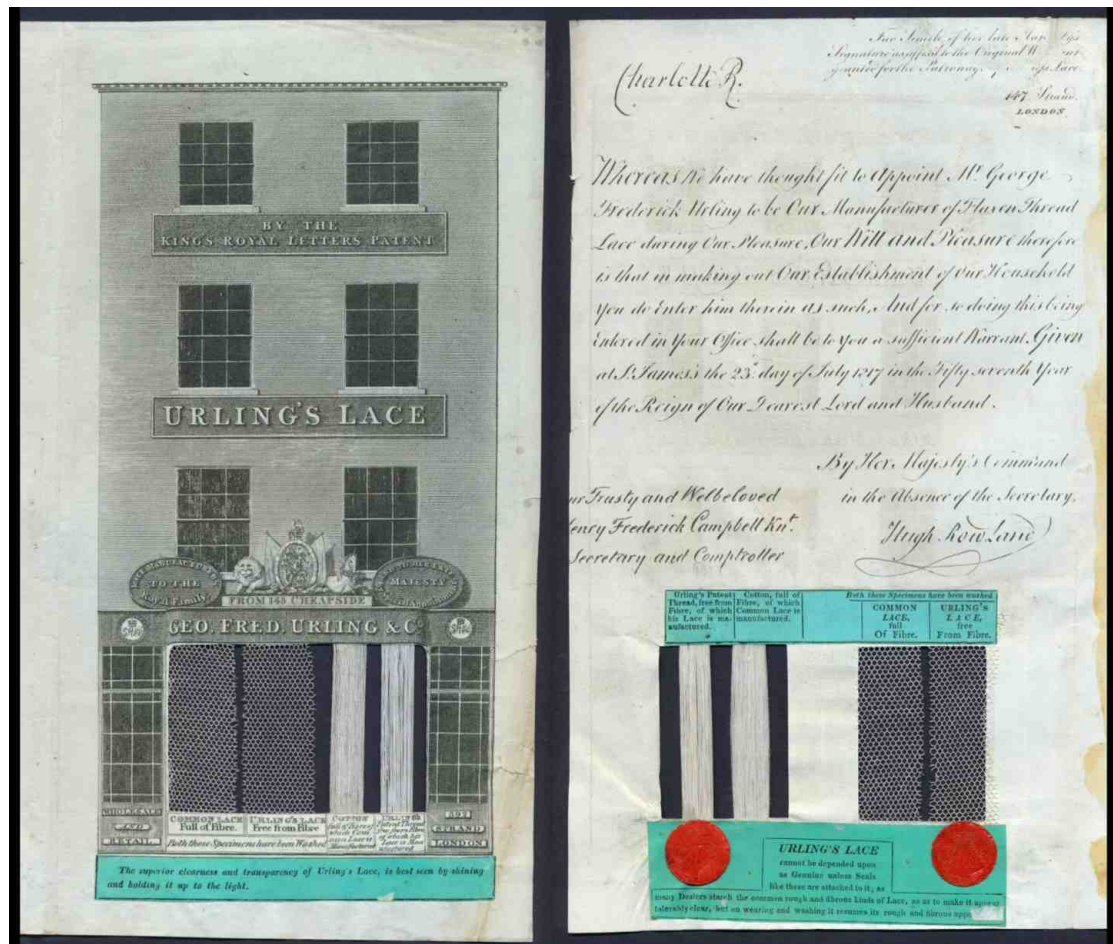 BY THE
KING'S ROYAL LETTERS PATENT
URLING'S LACE
LACE MANUFACTURERS
TO THE
Royal Family
MAJESTY
FROM 145 CHEAPSIDE
GEO. FRED. URLING & Co
WHOLESALE
AND
RETAIL
COMMON LACE
Full of Fibre.
URLING'S LACE
Free from Fibre
Both these Specimens have been Washed
COTTON
full of Fibre of
which Com
mon Lace is
Manufactured
URLING'S
Patent Thread
of which his
Lace is Man
ufactured
392
STRAND
LONDON
The superior clearness and transparency of Urling's Lace, is best seen by shining
and holding it up to the light.
Fac Simile of her late
Signature to the Original
granted for the
147 Strand.
LONDON
Charlotte R.
Whereas We have thought fit to Appoint Mr. George
Frederick Urling to be Our Manufacturer of Flaxen Thread
Lace during Our Pleasure, Our Will and Pleasure therefore
is that in making out Our Establishment of Our Household
You do Enter him therein as such, And for so doing this being
Entered in Your Office shall be to You a sufficient Warrant. Given
at St. James's the 23d. day of July 1817 in the Fifty seventh Year
of the Reign of Our Dearest Lord and Husband.
By Her Majesty's Command
in the Absence of the Secretary,
Hugh Rowland
ur Trusty and Welbeloved
enry Frederick Campbell Knt.
Secretary and Comptroller
Urling's Patent
Thread, free from
Fibre, of which
his Lace is ma-
nufactured.
Cotton, full of
Fibre, of which
Common Lace is
manufactured.
Both these Specimens have been washed
COMMON
LACE,
full
Of Fibre.
URLING'S
LACE,
free
From Fibre.
URLING'S LACE
cannot be depended upon
as Genuine unless Seals
like these are attached to it; as
many Dealers starch the common rough and fibrous kinds of Lace, so as to make it appear
tolerably clear, but on wearing and washing it resumes its rough and fibrous